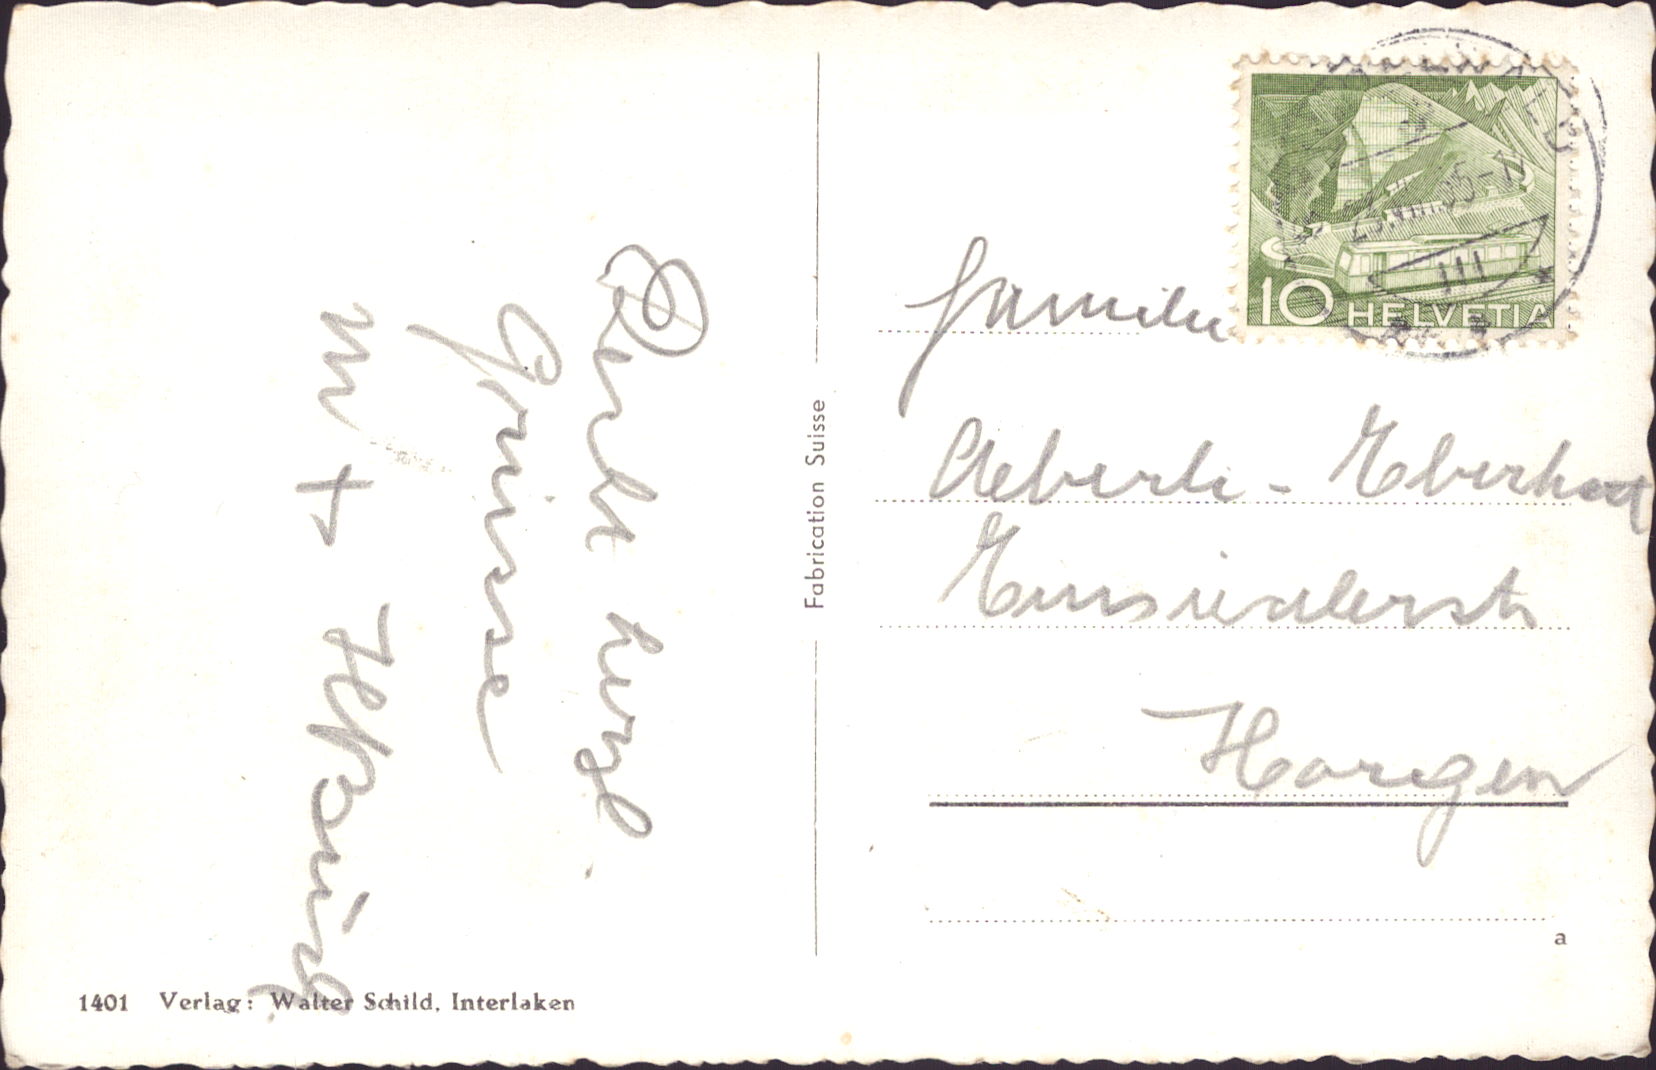 Recht herzl.
Grüsse
Familie
Aeberli - Eberhart
Einsiedlerstr
Horgen
10 HELVETIA
Fabrication Suisse
1401 Verlag: Walter Schild, Interlaken
a